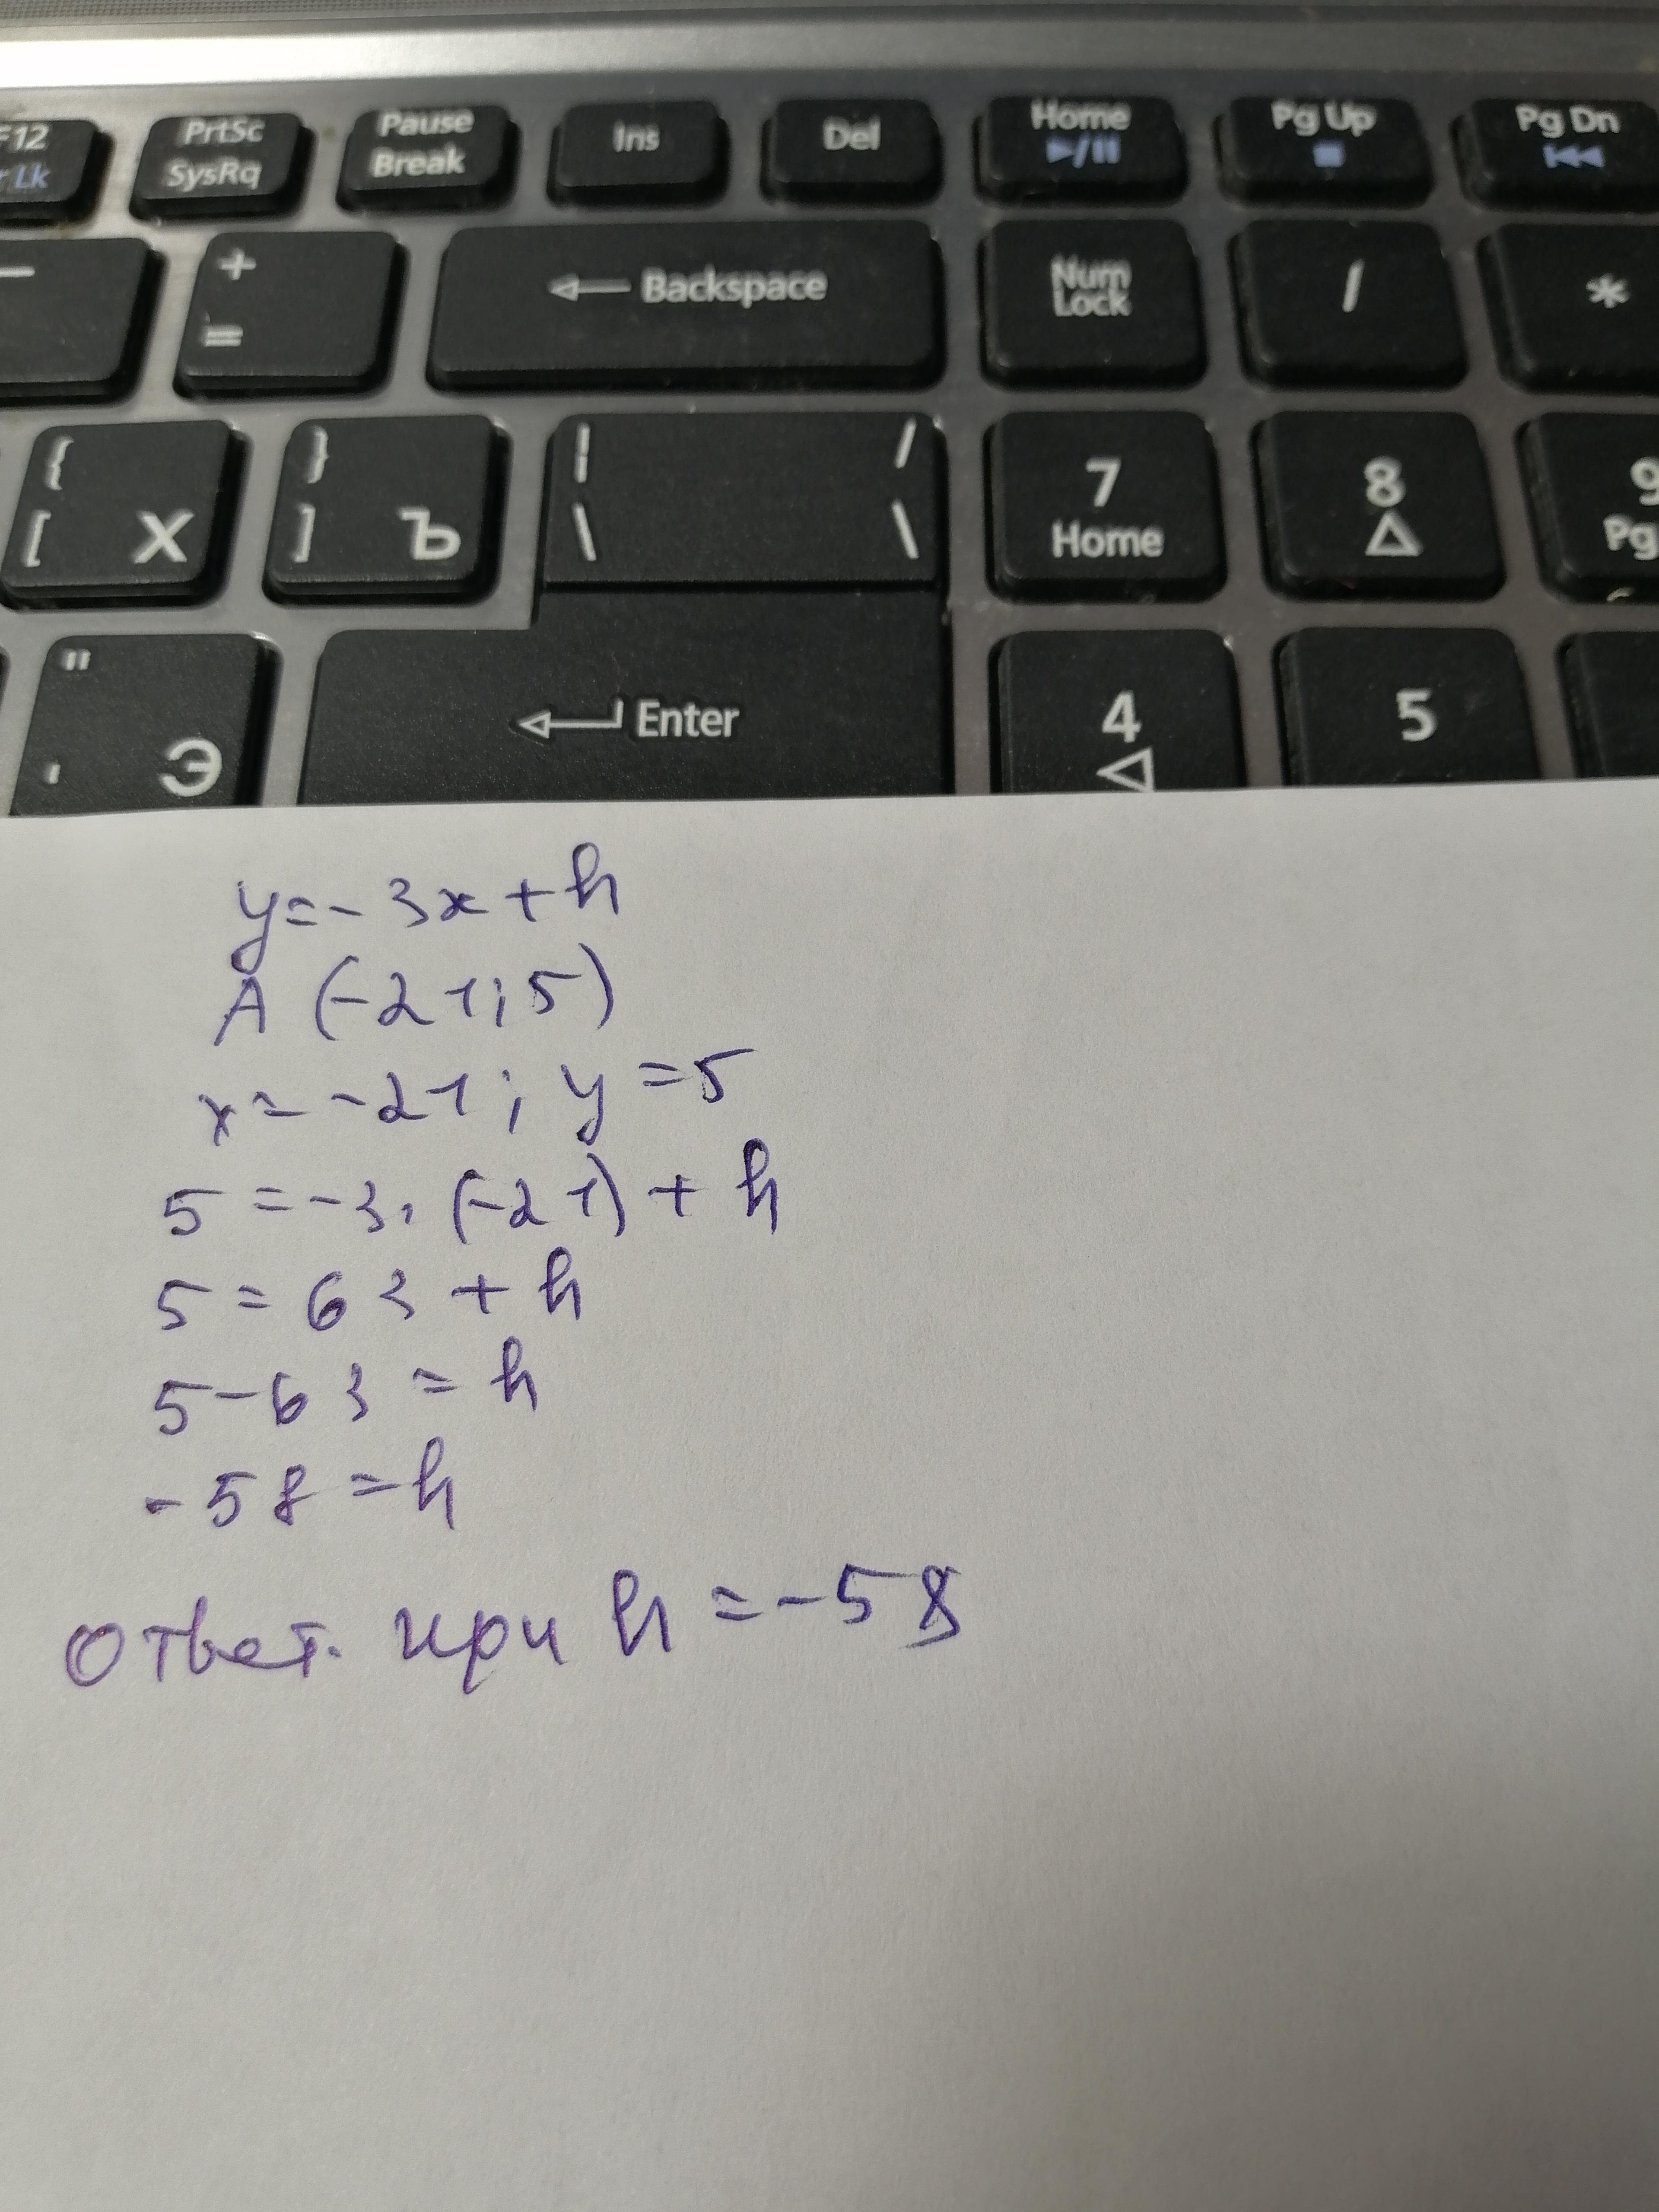 F12 PrtSc Pause Ins Del Home Pg Up Pg Dn
r Lk SysRq Break
+ Backspace Num /  *
= Lock
{ } | / 7 8 9
[ Х ] Ъ \ \ Home Pg
" Enter 4 5
' Э
y=-3x+h
A (-21;5)
x=-21; y=5
5=-3·(-21)+h
5=63+h
5-63=h
-58=h
Ответ. при h=-58